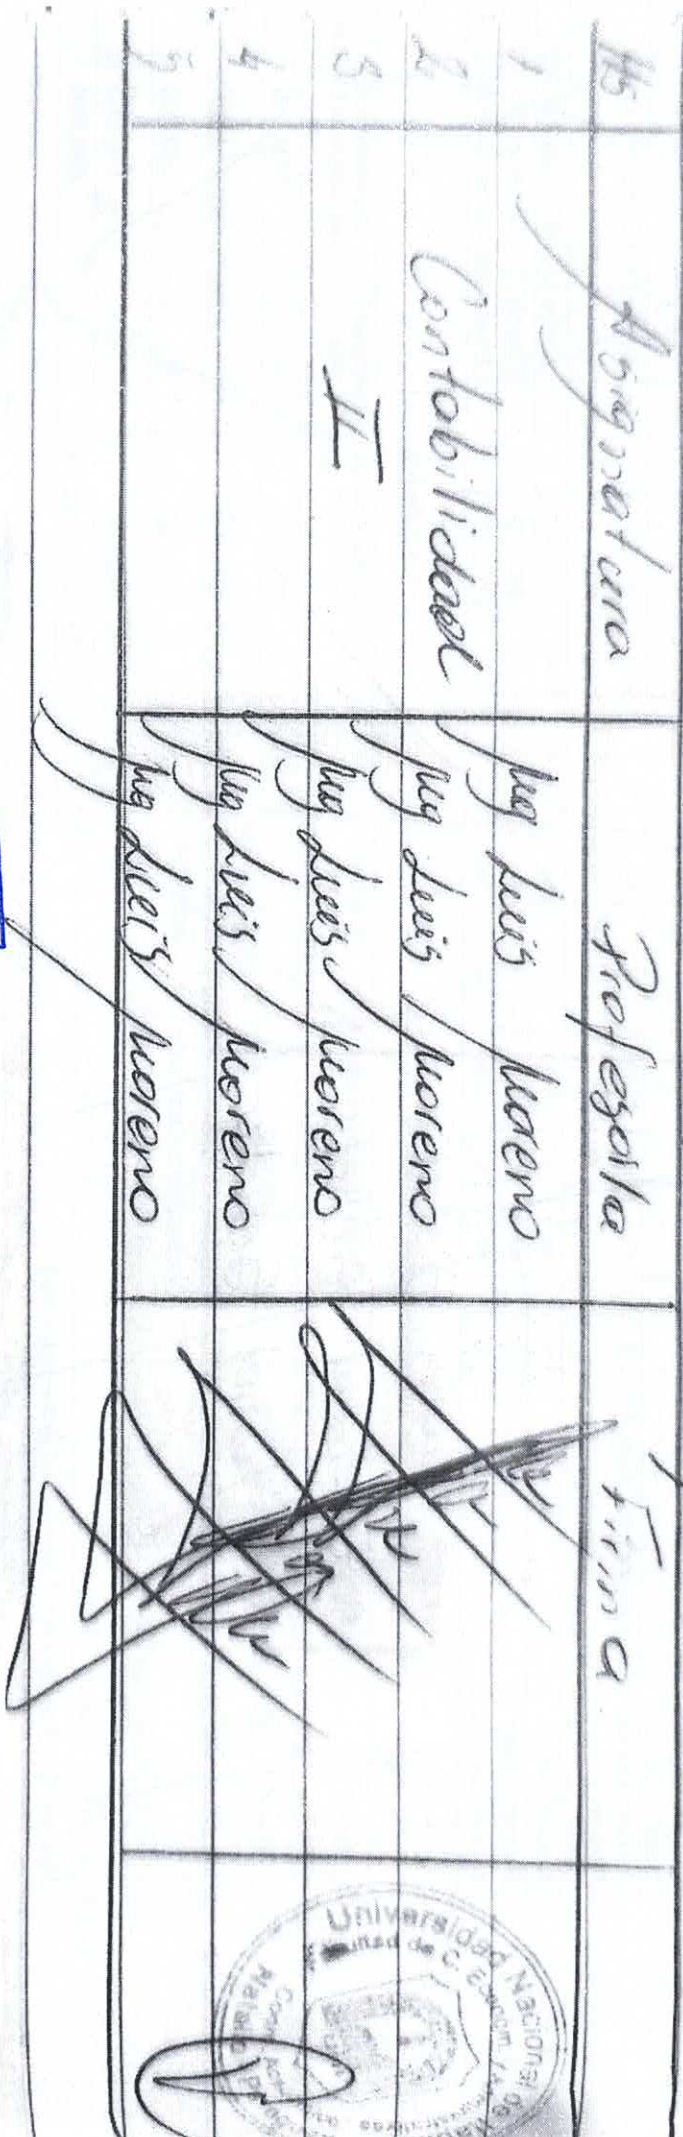 Hs Asignatura Profesor/a Firma
1 Mg Luis Moreno
2 Contabilidad Mg Luis Moreno
3 II Mg Luis Moreno
4 Mg Luis Moreno
5 Mg Luis Moreno
Universidad Nacional de
Facultad de C. Econom. y Administrativas